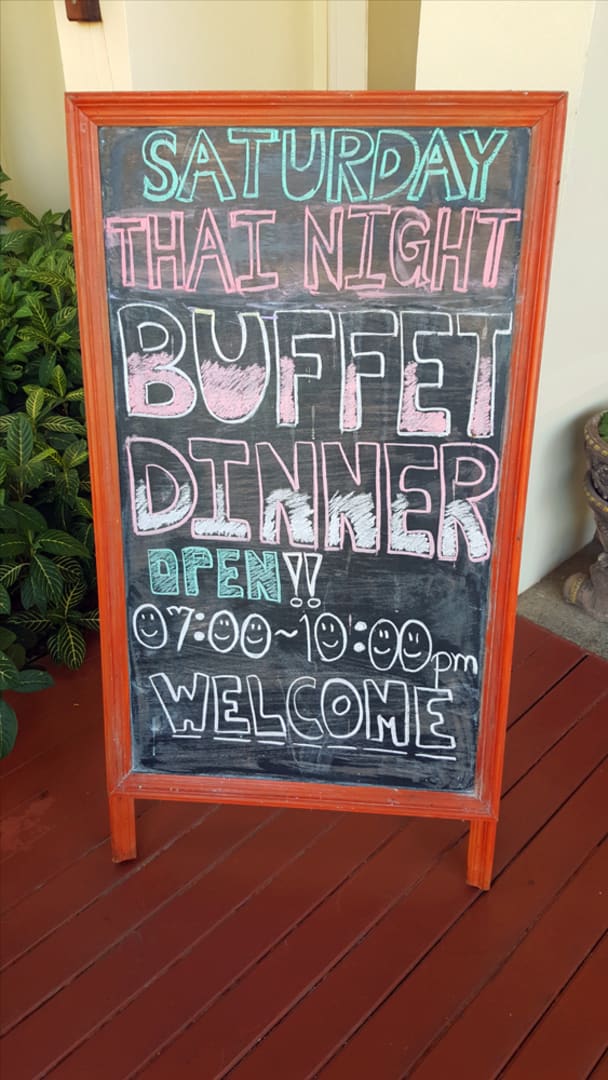 SATURDAY
THAI NIGHT
BUFFET
DINNER
OPEN!!
07:00~10:00pm
WELCOME